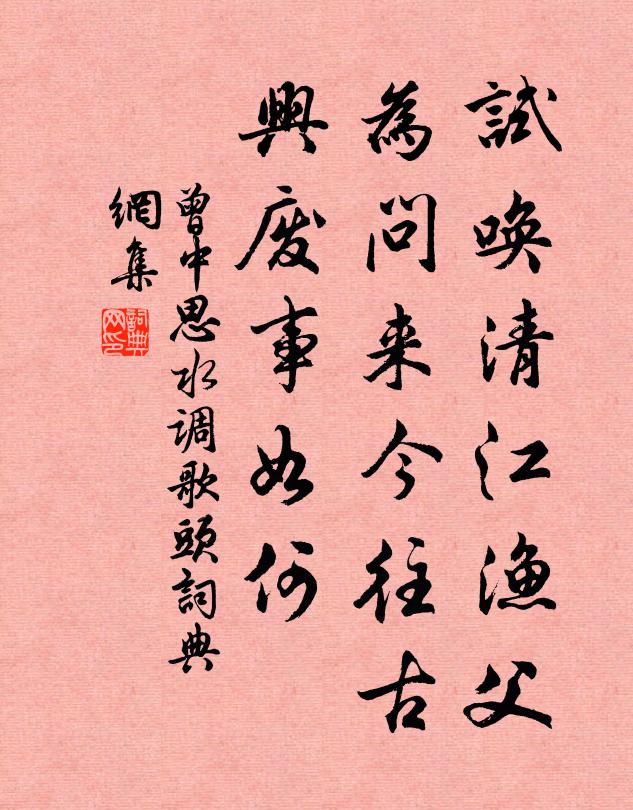 試唤清江渔父
為問来今往古
興废事如何
曾中思水调歌頭詞典
網集
詞典网印